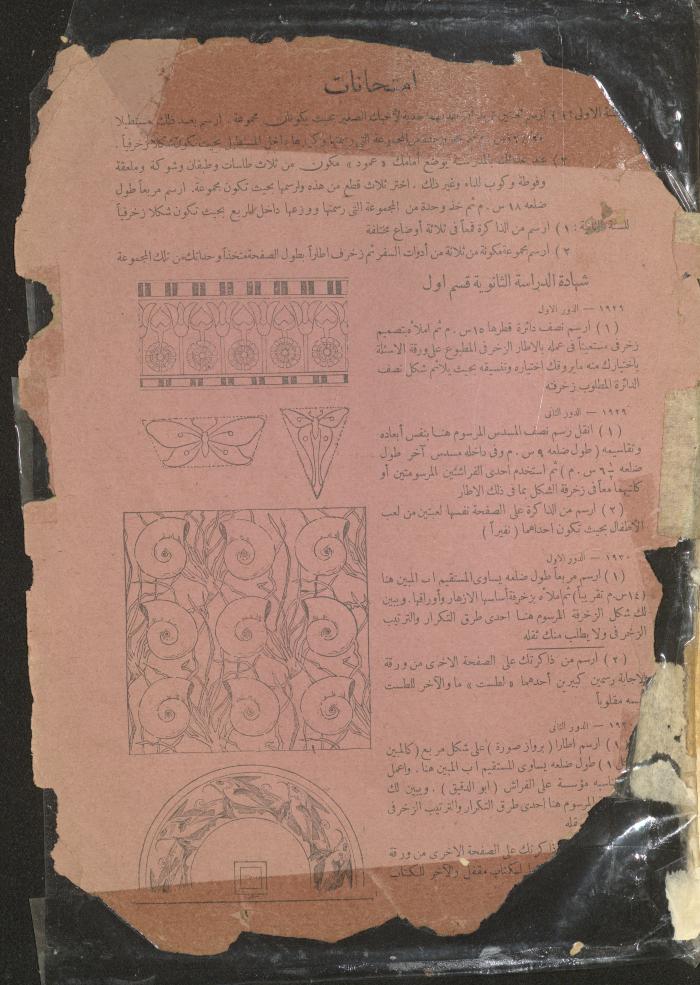 امتحانات
السنة الاولى : ١ ) ارسم بحيث يكونان مجموعة . ارسم بعد ذلك مستطيلا
المجموعة التى رسمتها وكررها داخل المستطيل بحيث تكون شكلا زخرفياً .
٢ ) يوضع أمامك « عمود » مكون من ثلاث طاسات وطبقان وشوكة وملعقة
وفوطة وكوب للماء وغير ذلك . اختر ثلاث قطع من هذه ولرسمها بحيث تكون مجموعة . ارسم مربعاً طول
ضلعه ١٨ س . م ثم خذ وحدة من المجموعة التى رسمتها ووزعها داخل المربع بحيث تكون شكلا زخرفياً
للسنة الثانية : ١ ) ارسم من الذاكرة قمعاً فى ثلاثة أوضاع مختلفة
٢ ) ارسم مجموعة مكونة من ثلاثة من أدوات السفر ثم زخرف اطاراً بطول الصفحة متخذاً وحداتك من تلك المجموعة
شهادة الدراسة الثانوية قسم اول
١٩٢٩ — الدور الاول
( ١ ) ارسم نصف دائرة قطرها ١٥ س . م ثم املأه بتصميم
زخرفى مستعيناً فى عمله بالاطار الزخرفى المطبوع على ورقة الاسئلة
باختيارك منه ما يروقك اختياره وتنسيقه بحيث يلائم شكل نصف
الدائرة المطلوب زخرفته
١٩٢٩ — الدور الثانى
( ١ ) انقل رسم نصف المسدس المرسوم هنا بنفس أبعاده
وتقاسيمه ( طول ضلعه ٩ س . م وفى داخله مسدس آخر طول
ضلعه س . م ) ثم استخدم احدى الفراشتين المرسومتين أو
كلتيهما معاً فى زخرفة الشكل بما فى ذلك الاطار
( ٢ ) ارسم من الذاكرة على الصفحة نفسها لعبتين من لعب
الأطفال بحيث تكون احداهما ( نفيراً )
١٩٣٠ — الدور الاول
( ١ ) ارسم مربعاً طول ضلعه يساوى المستقيم ا ب المبين هنا
( ١٤ س . م تقريباً ) ثم املأه بزخرفة أساسها الازهار وأوراقها . ويبين
لك شكل الزخرفة المرسوم هنا احدى طرق التكرار والترتيب
الزخرفى ولا يطلب منك نقله
( ٢ ) ارسم من ذاكرتك على الصفحة الاخرى من ورقة
الاجابة رسمين كبيرين أحدهما « لطست » ما والآخر للطست
نفسه مقلوباً
— الدور الثانى
( ١ ) ارسم اطارا ( برواز صورة ) على شكل مربع ( كالمبين
طول ضلعه يساوى المستقيم ا ب المبين هنا . واعمل
مؤسسة على الفراش ( ابو الدقيق ) . ويبين لك
المرسوم هنا احدى طرق التكرار والترتيب الزخرفى
نقله
ذاكرتك على الصفحة الاخرى من ورقة
لكتاب مقفل والآخر للكتاب